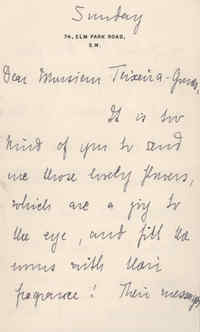 Sunday
74, ELM PARK ROAD,
S.W.
Dear Monsieur Teixeira-Gomes,
It is too
kind of you to send
me those lovely flowers,
which are a joy to
the eye, and fill the
rooms with their
fragrance! Their message